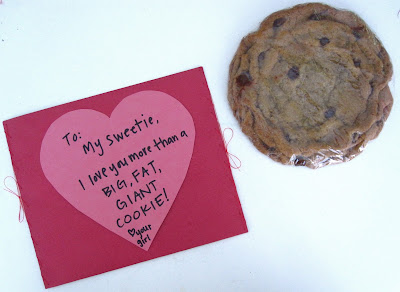 To:
My sweetie,
I love you more than a
BIG, FAT,
GIANT
COOKIE!
♥your
girl